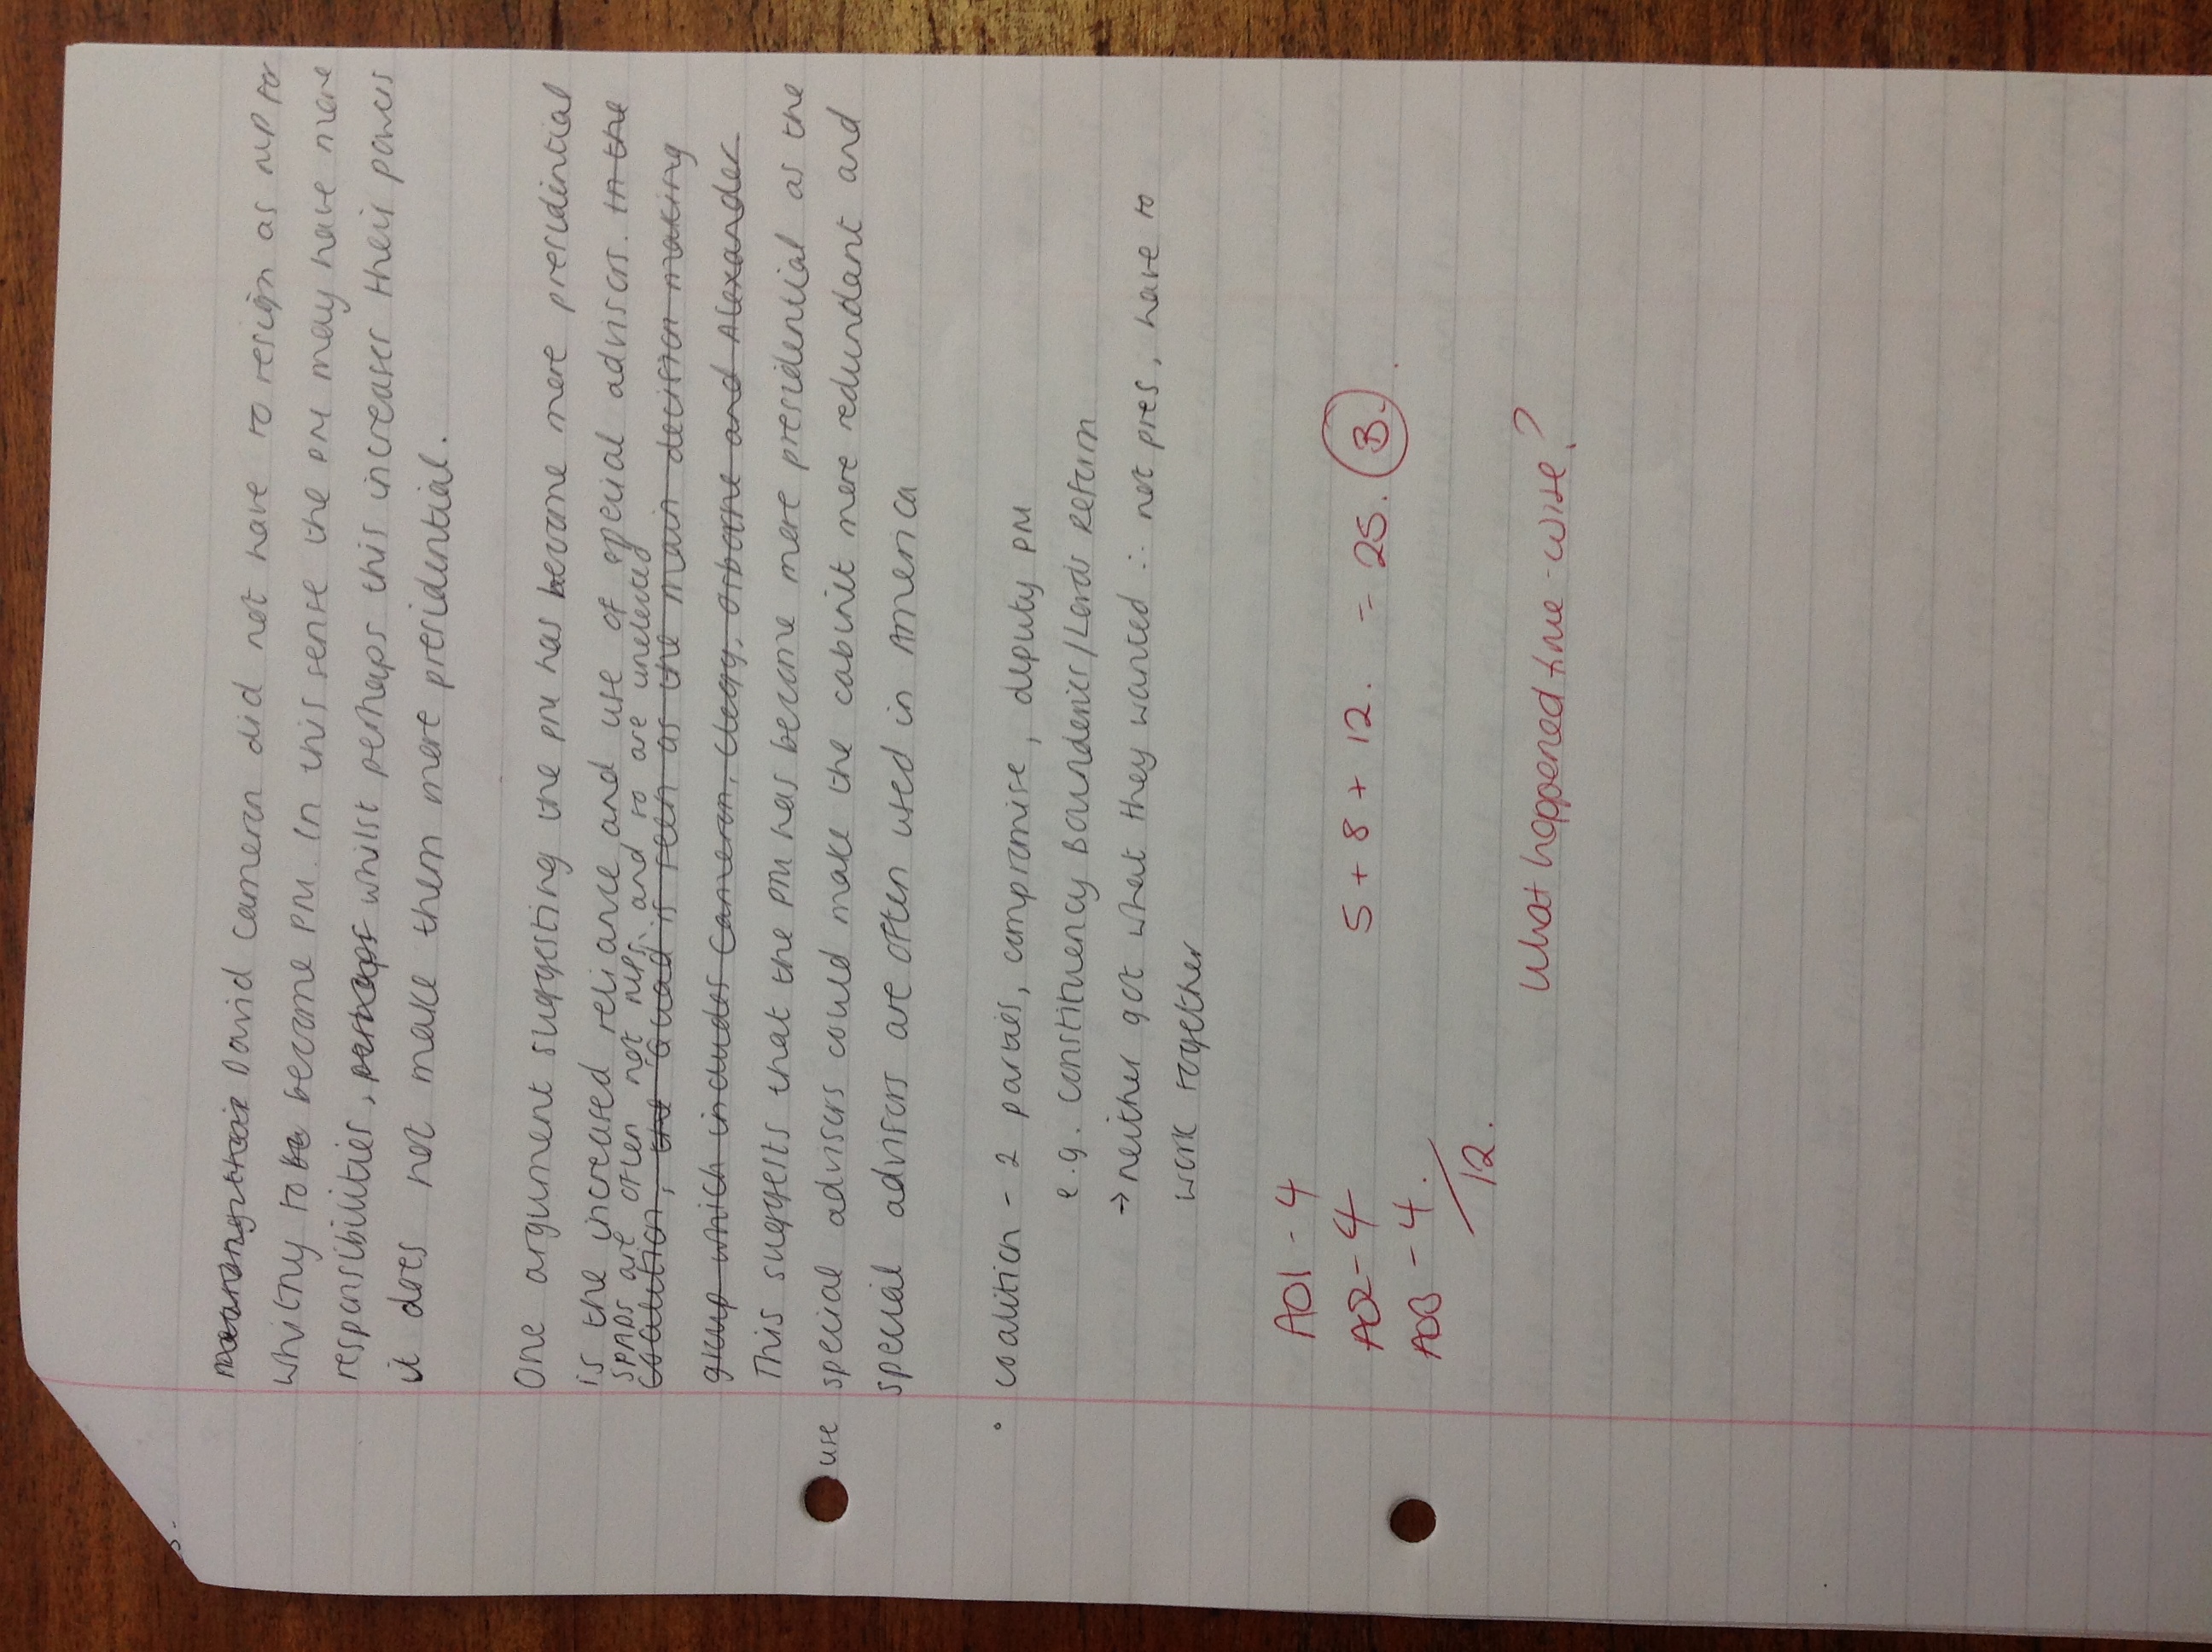 David Cameron did not have to resign as MP for
Whitny to be become PM. In this sense the PM may have more
responsibilities, perhaps whilst perhaps this increases their powers
it does not make them more presidential.
One argument suggesting the PM has become more presidintial
is the increased reliance and use of special advisors. In the
SPADs are often not MPs, and so are unelected
Coalition, the Quad is seen as the main decision making
group which includes Cameron, Clegg, Osborne and Alexander.
This suggests that the PM has become more presidential as the
use special advisors could make the cabinit more redundant and
special advisors are often used in America
• Coalition - 2 parties, compromise, deputy PM
e.g. constituency Boundenies/Lords Reform
→ neither got what they wanted ∴ not pres, have to
work together
AO1 - 4
AO2 - 4 5 + 8 + 12. = 25. B.
AO3 - 4.
/12.
What happened time-wise?